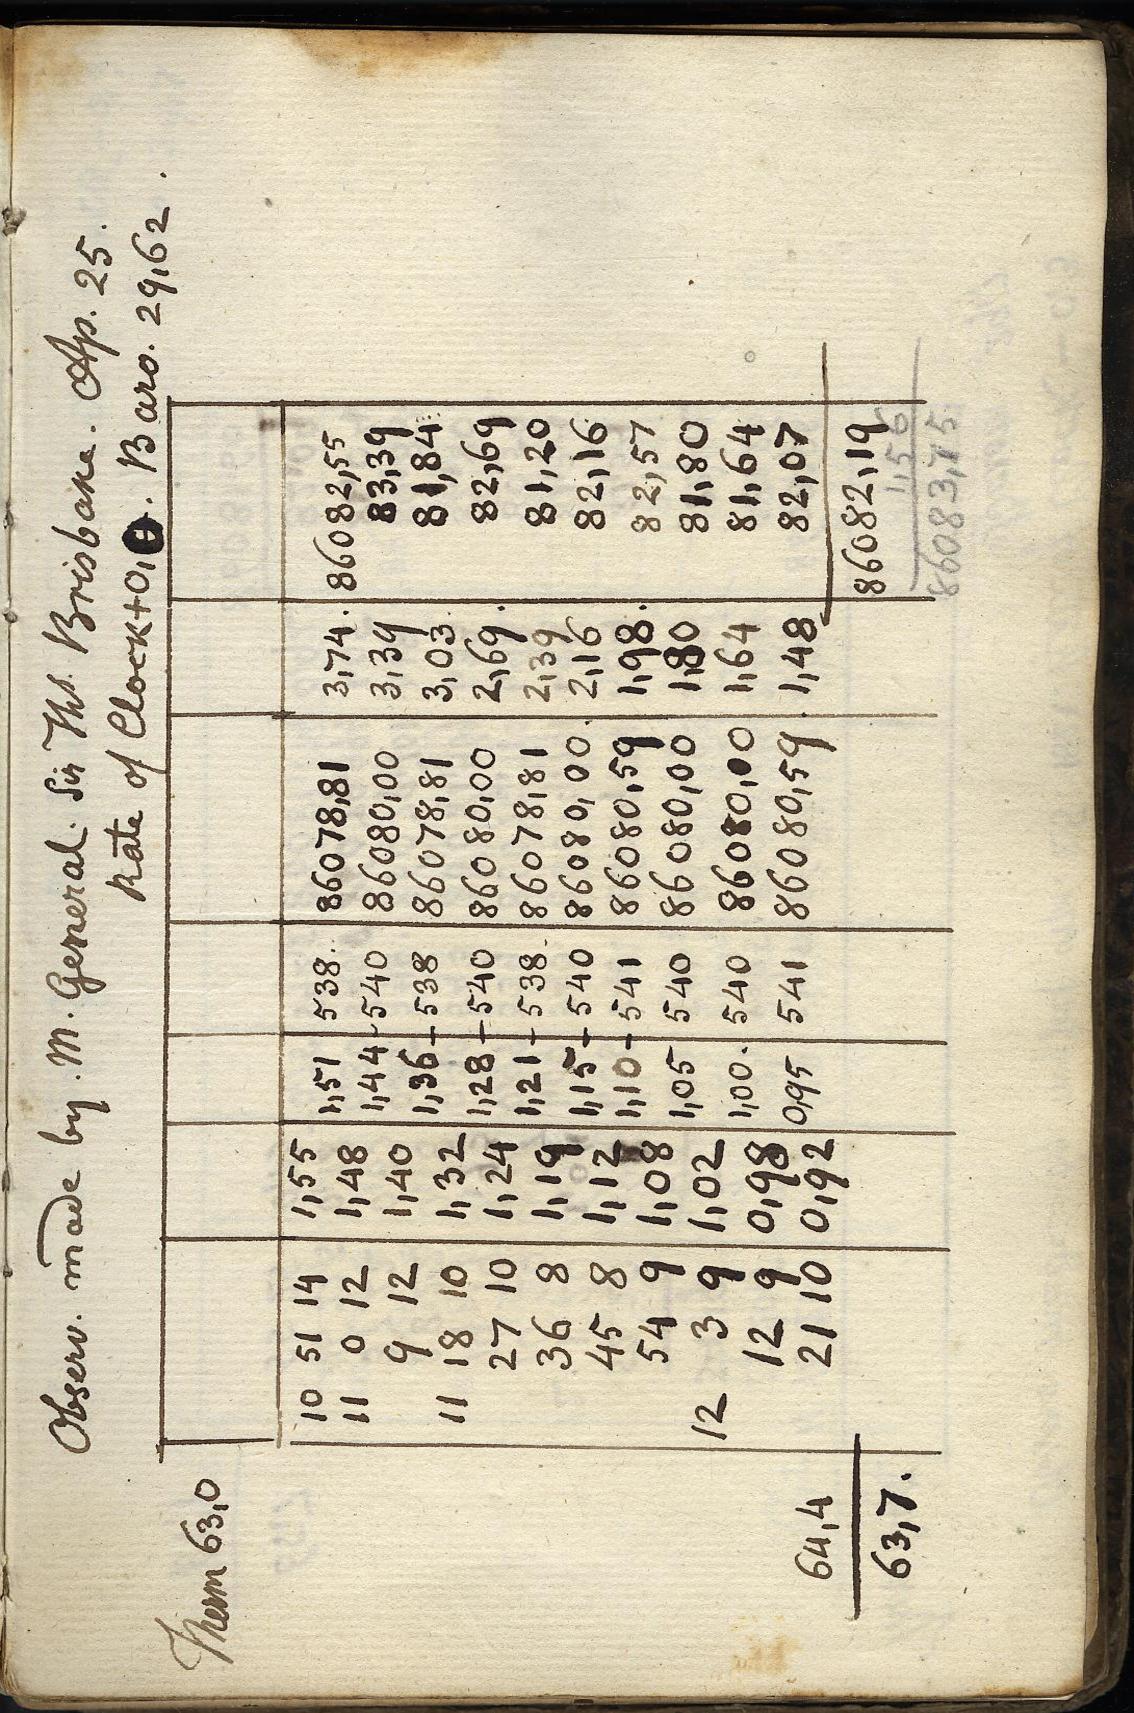 Observ. made by. M. General. Sir Ths. Brisbane. Ap. 25.
Rate of Clock +0,0. Baro. 29,62.
Therm 63,0
10 51 14 1,55
1,51 538. 86078,81 3,74. 86082,55
11 0 12 1,48
1,44 540 86080,00 3,39 83,39
9 12 1,40
1,36 538 86078,81 3,03 81,84
11 18 10 1,32
1,28 540 86080,00 2,69. 82,69
27 10 1,24
1,21 538. 86078,81 2,39 81,20
36 8 1,19
1,15 540 86080,00. 2,16 82,16
45 8 1,12
1,10 541 86080,59 1,98. 82,57
54 9 1,08
1,05 540 86080,00 1,80 81,80
12 3 9 1,02
1,00. 540 86080,00 1,64 81,64
12 9 0,98
0,95 541 86080,59 1,48 82,07
64,4 21 10 0,92
63,7. 86082,19
1,56
86083,75